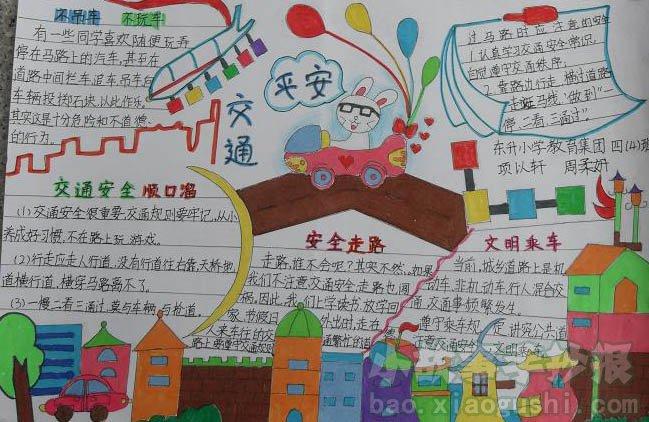 不吊车 不玩车
有一些同学喜欢随便玩弄
停在马路上的汽车,甚至在
道路中间拦车、追车、吊车、向
车辆投掷石块,以此作乐,
其实这是十分危险和不道德
的行为。
交通
平安
过马路时应注意的安全
1.认真学习交通安全常识,
自觉遵守交通秩序;
2.靠路边行走,横过道路
走斑马线,“做到”一
停,二看,三通过”。
东升小学教育集团 四(4)班
项以轩 周柔妍
交通安全顺口溜
(1)交通安全很重要,交通规则要牢记,从小
养成好习惯,不在路上玩游戏。
(2)行走应走人行道,没有行道往右靠,天桥地
道横行道,横穿马路离不了。
(3)一慢二看三通过,莫与车辆去抢道。
安全走路
走路,谁不会呢?其实不然。如果
我们不注意交通安全走路也闯
祸。因此,我们上学读书,放学回
家、节假日 外出时,走在
人来车行的交 通繁忙的道
路上要遵守交通规则
文明乘车
当前,城乡道路上是机
动车、非机动车、行人混合交
通,交通事频繁发生。
遵守乘车规定,讲究公共道
注意交通安全 文明乘车
bao.xiaogushi.com